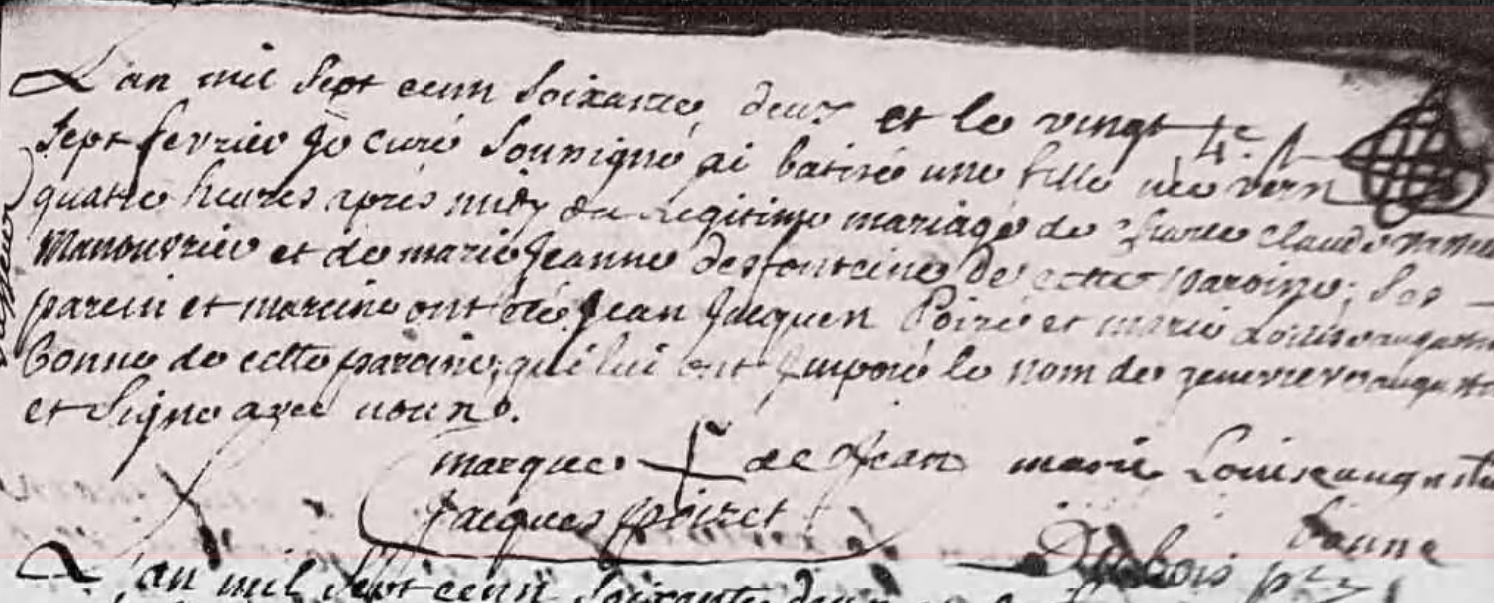 L'an mil sept cenn soixante deux et le vingt
4e.
sept fevrier Je curé sounigné ai batisé une fille née vern
quatre heures après midy du Legitime mariage de Claude
Manouvrier et de marie Jeanne desfonteine De cette paroine; ses
parein et mareine ont été Jean Jacquen Poiré et marie Louise
bonne de cette paroine, qui lui ont Imposé le nom de
et signe avec noun.
marque de Jean marie Louise augustine
Jacques poiret bonne
Dubois ptre
L'an mil sept cenn soixante deux